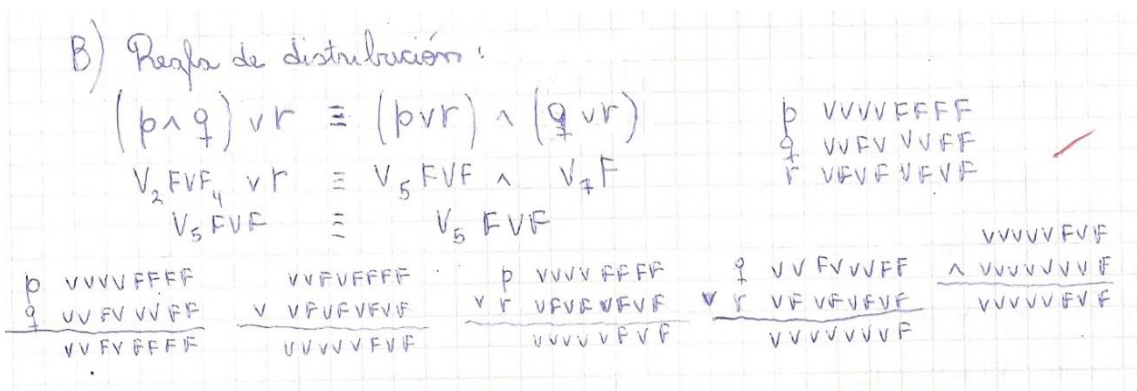 B) Regla de distribución:
(p ∧ q) ∨ r ≡ (p ∨ r) ∧ (q ∨ r)
V₂FVF₄ ∨ r ≡ V₅FVF ∧ V₇F
V₅FVF ≡ V₅FVF
p VVVVFFFF
q VVFVVVFF
r VFVFVFVF
p VVVVFFFF
q VVFVVVFF
VVFVFFFF
VVFVFFFF
∨ VFVFVFVF
VVVVVFVF
p VVVVFFFF
∨ r VFVFVFVF
VVVVVFVF
q VVFVVVFF
∨ r VFVFVFVF
VVVVVVVF
VVVVVFVF
∧ VVVVVVVF
VVVVVFVF